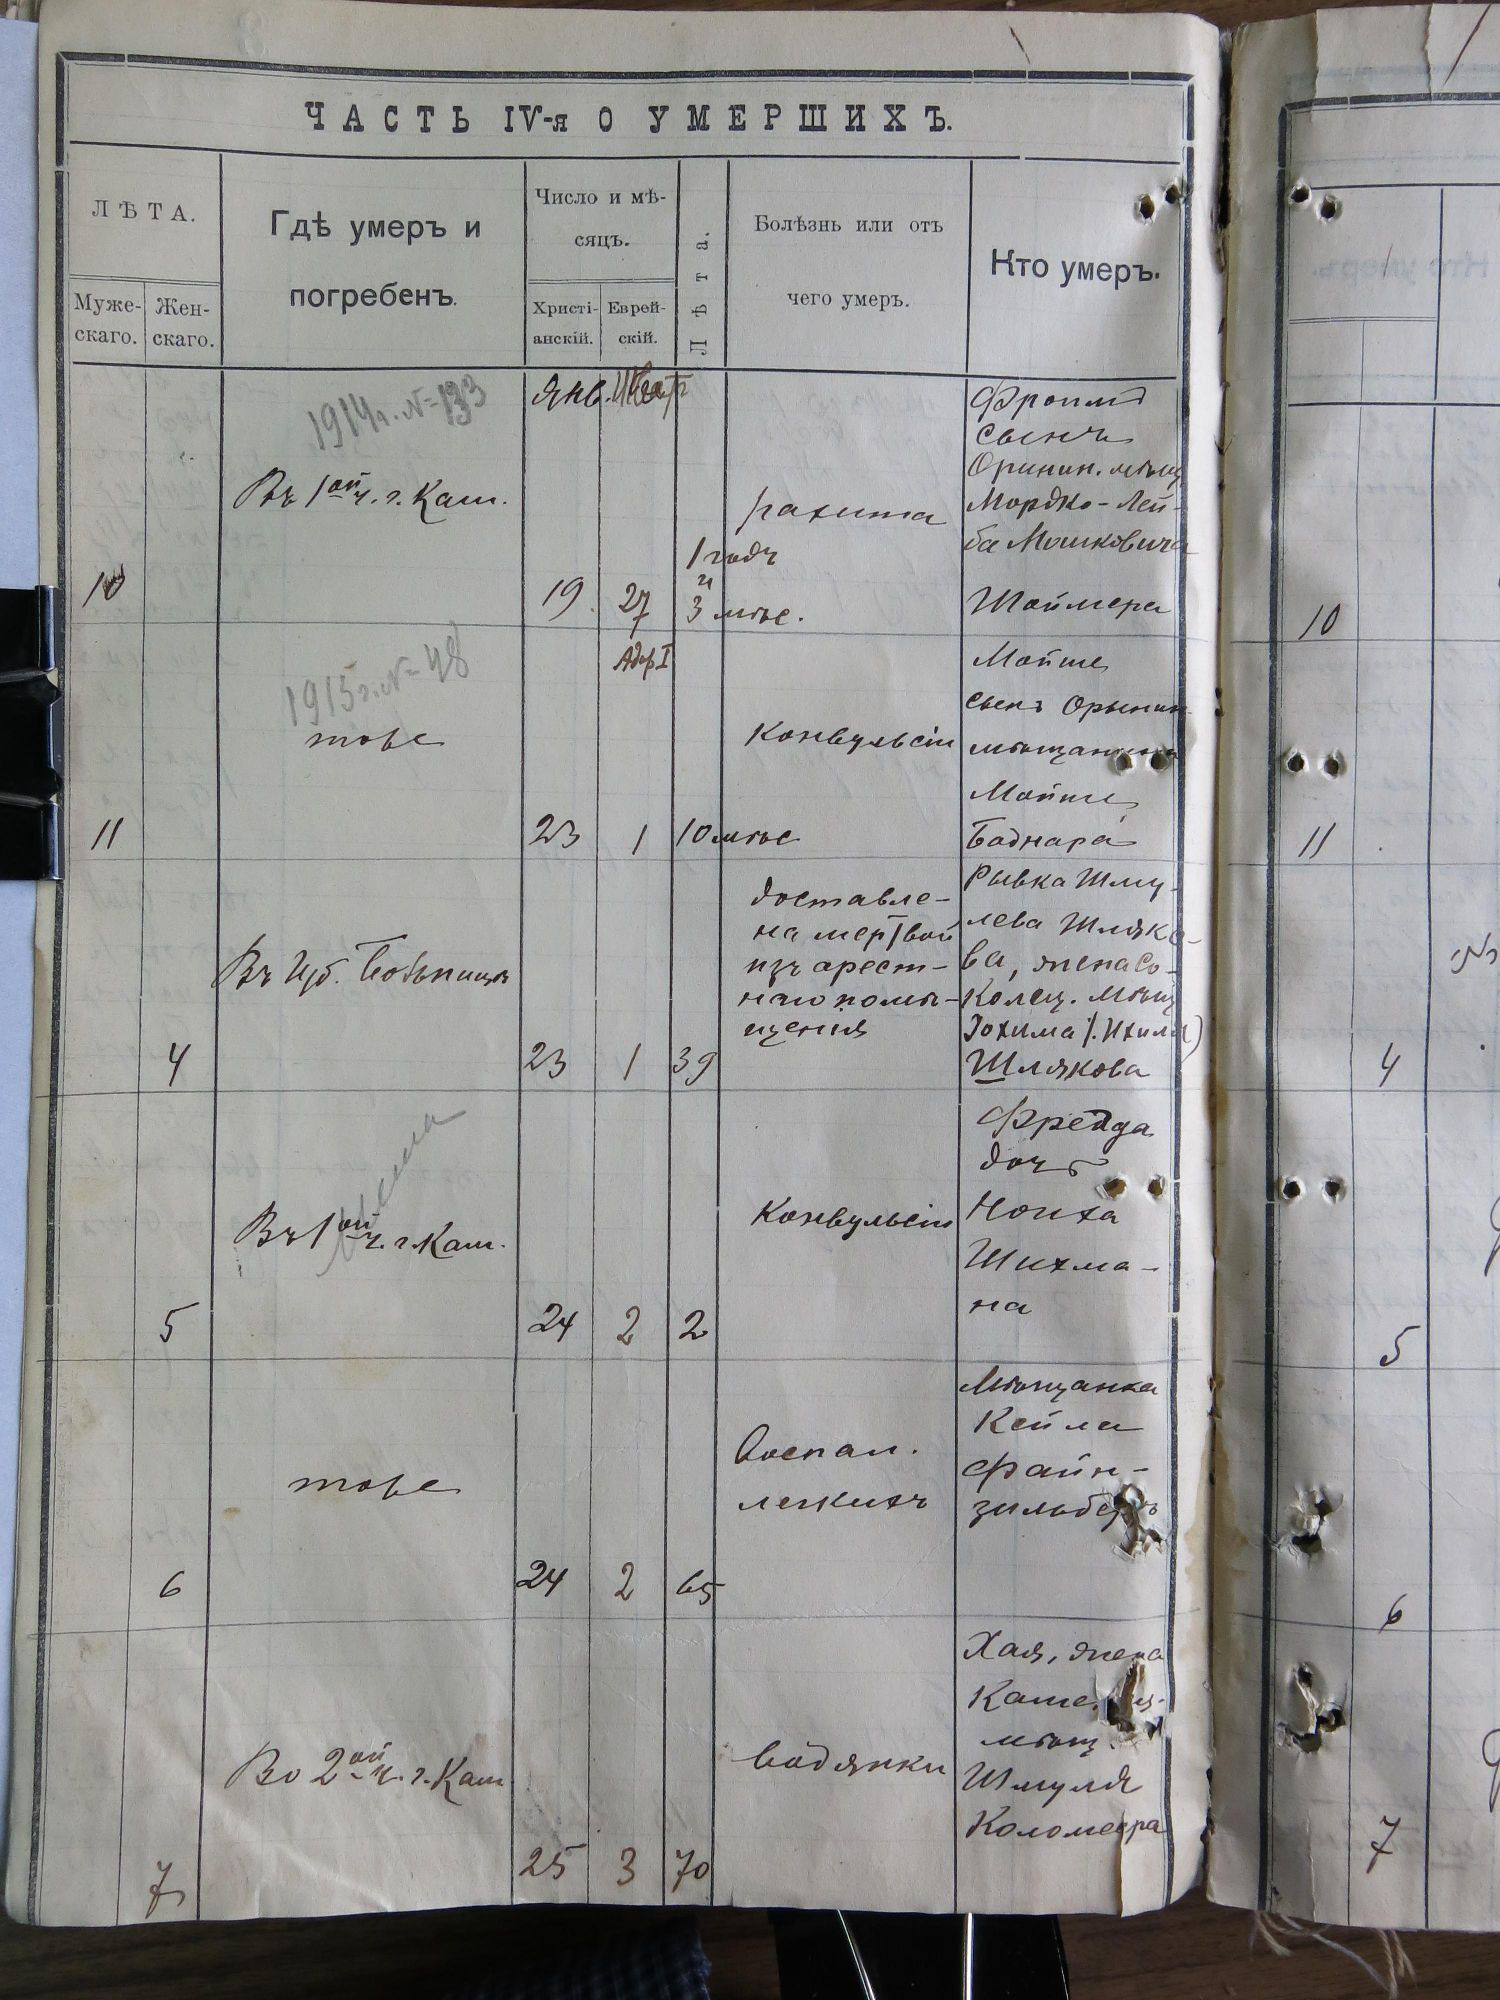 ЧАСТЬ IV-я О УМЕРШИХЪ.
ЛѢТА.
Муже-
скаго.
Жен-
скаго.
Гдѣ умеръ и
погребенъ.
Число и мѣ-
сяцъ.
Христі-
анскій.
Еврей-
скій.
Лѣта.
Болѣзнь или отъ
чего умеръ.
Кто умеръ.
1914г. №=133
Янв.
Въ 1ой ч. г. Кам.
10
19
27
1 годъ
и
3 мѣс.
рахита
Фроимъ
сынъ
Оринин. мѣщ
Мордко-Лей-
ба Мошковича
Шоймера
1915г. №=48
тоже
11
Адар I
23
1
10 мѣс
конвульсіи
Мойше
сынъ Орынин.
мѣщанина
Мойше
Боднара
Въ Губ. Больницѣ
4
23
1
39
доставле-
на мертвой
изъ арест-
наго помѣ-
щенія
Рывка Шму-
лева Шляко-
ва, жена Со-
колец. мѣщ
Іохима (. Ихиля)
Шлякова
Въ 1ой ч. г. Кам.
5
24
2
2
Конвульсіи
Фрейда
дочь
Ноиха
Шихма-
на
тоже
6
24
2
65
Воспал.
легкихъ
Мѣщанка
Кейла
Файн-
зильберъ
Во 2ой ч. г. Кам.
7
25
3
70
водянки
Хая, жена
мѣщ.
Шмуля
Коломеера
Кто умеръ.
10
11
4
5
6
7